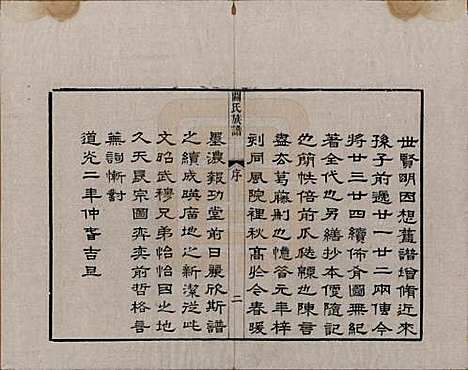 世賢明因想舊譜增脩近來
孫子前遞廿一廿二兩使今
將廿三廿四續佈音圖無紀
著全代也另繕抄本便隨記
也簡帙倍前瓜瓞也陳書
盡太葛藤剬也憶昔元年梓
到同風院裡秋高於今春暖
關氏族譜
序
二
墨濃報功堂前日麗欣斯譜
之續成暎廣地之新潔從此
文昭武穆兄弟怡怡因之地
久天長宗圖奕奕前哲格言
蕪詞慚對
道光二年仲春吉旦